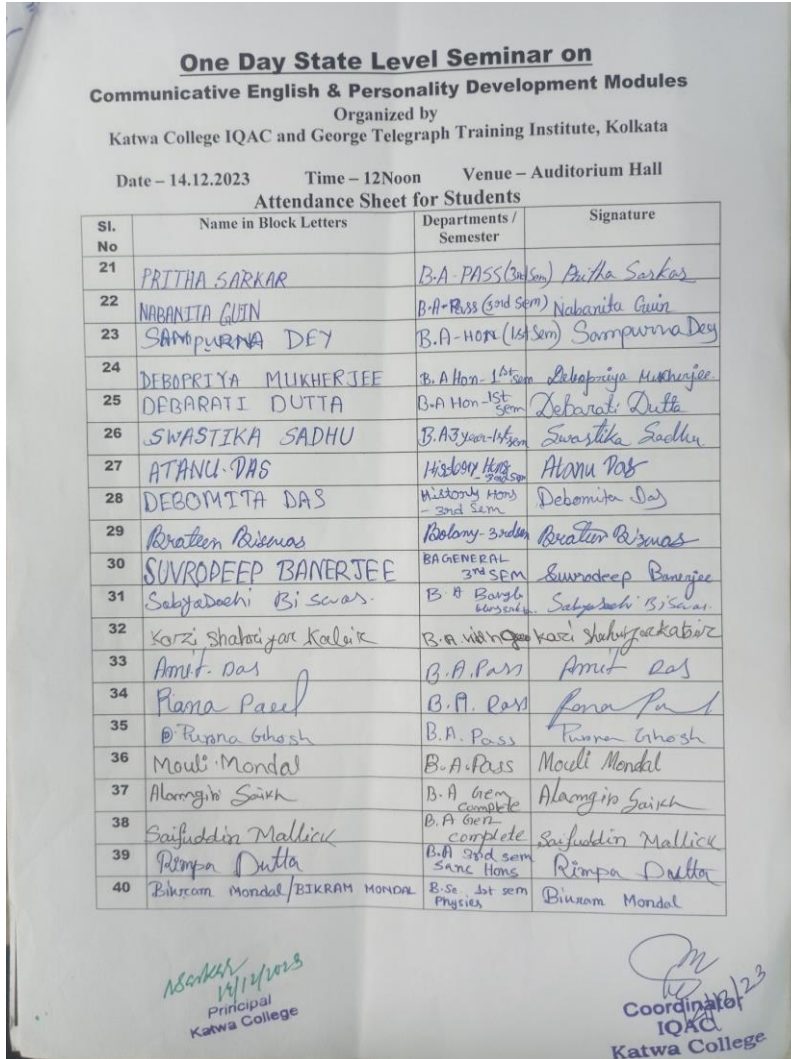 One Day State Level Seminar on
Communicative English & Personality Development Modules
Organized by
Katwa College IQAC and George Telegraph Training Institute, Kolkata
Date – 14.12.2023 Time – 12Noon Venue – Auditorium Hall
Attendance Sheet for Students
Sl. No Name in Block Letters Departments / Semester Signature
21 PRITHA SARKAR B.A - PASS (3rd Sem) Pritha Sarkar
22 NABANITA GUIN B.A - Pass (3rd Sem) Nabanita Guin
23 SAMPURNA DEY B.A - HON (1st Sem) Sampurna Dey
24 DEBOPRIYA MUKHERJEE B.A Hon - 1st sem Debopriya Mukherjee
25 DEBARATI DUTTA B.A Hon - 1st sem Debarati Dutta
26 SWASTIKA SADHU B.A 3 year - 1st sem Swastika Sadhu
27 ATANU DAS History Hons Atanu Das
28 DEBOMITA DAS History Hons - 3rd Sem Debomita Das
29 Brateen Biswas Botany - 3rd sem Brateen Biswas
30 SUVRODEEP BANERJEE BA GENERAL 3rd SEM Suvrodeep Banerjee
31 Sabyasachi Biswas. B.A Sabyasachi Biswas.
32 Kazi Shahriyar Kabir B.A Kazi Shahriyar Kabir
33 Amit Das B.A. Pass Amit Das
34 Rana B.A. Pass Rana
35 Purna Ghosh B.A. Pass Purna Ghosh
36 Mouli Mondal B.A. Pass Mouli Mondal
37 Alamgir Saikh B.A Gen complete Alamgir Saikh
38 Saifuddin Mallick B.A Gen complete Saifuddin Mallick
39 Rimpa Dutta B.A 3rd sem Sanc Hons Rimpa Dutta
40 Bikram Mondal/BIKRAM MONDAL B.Sc 1st sem Physics Bikram Mondal
14/12/2023
Principal
Katwa College
Coordinator
IQAC
Katwa College